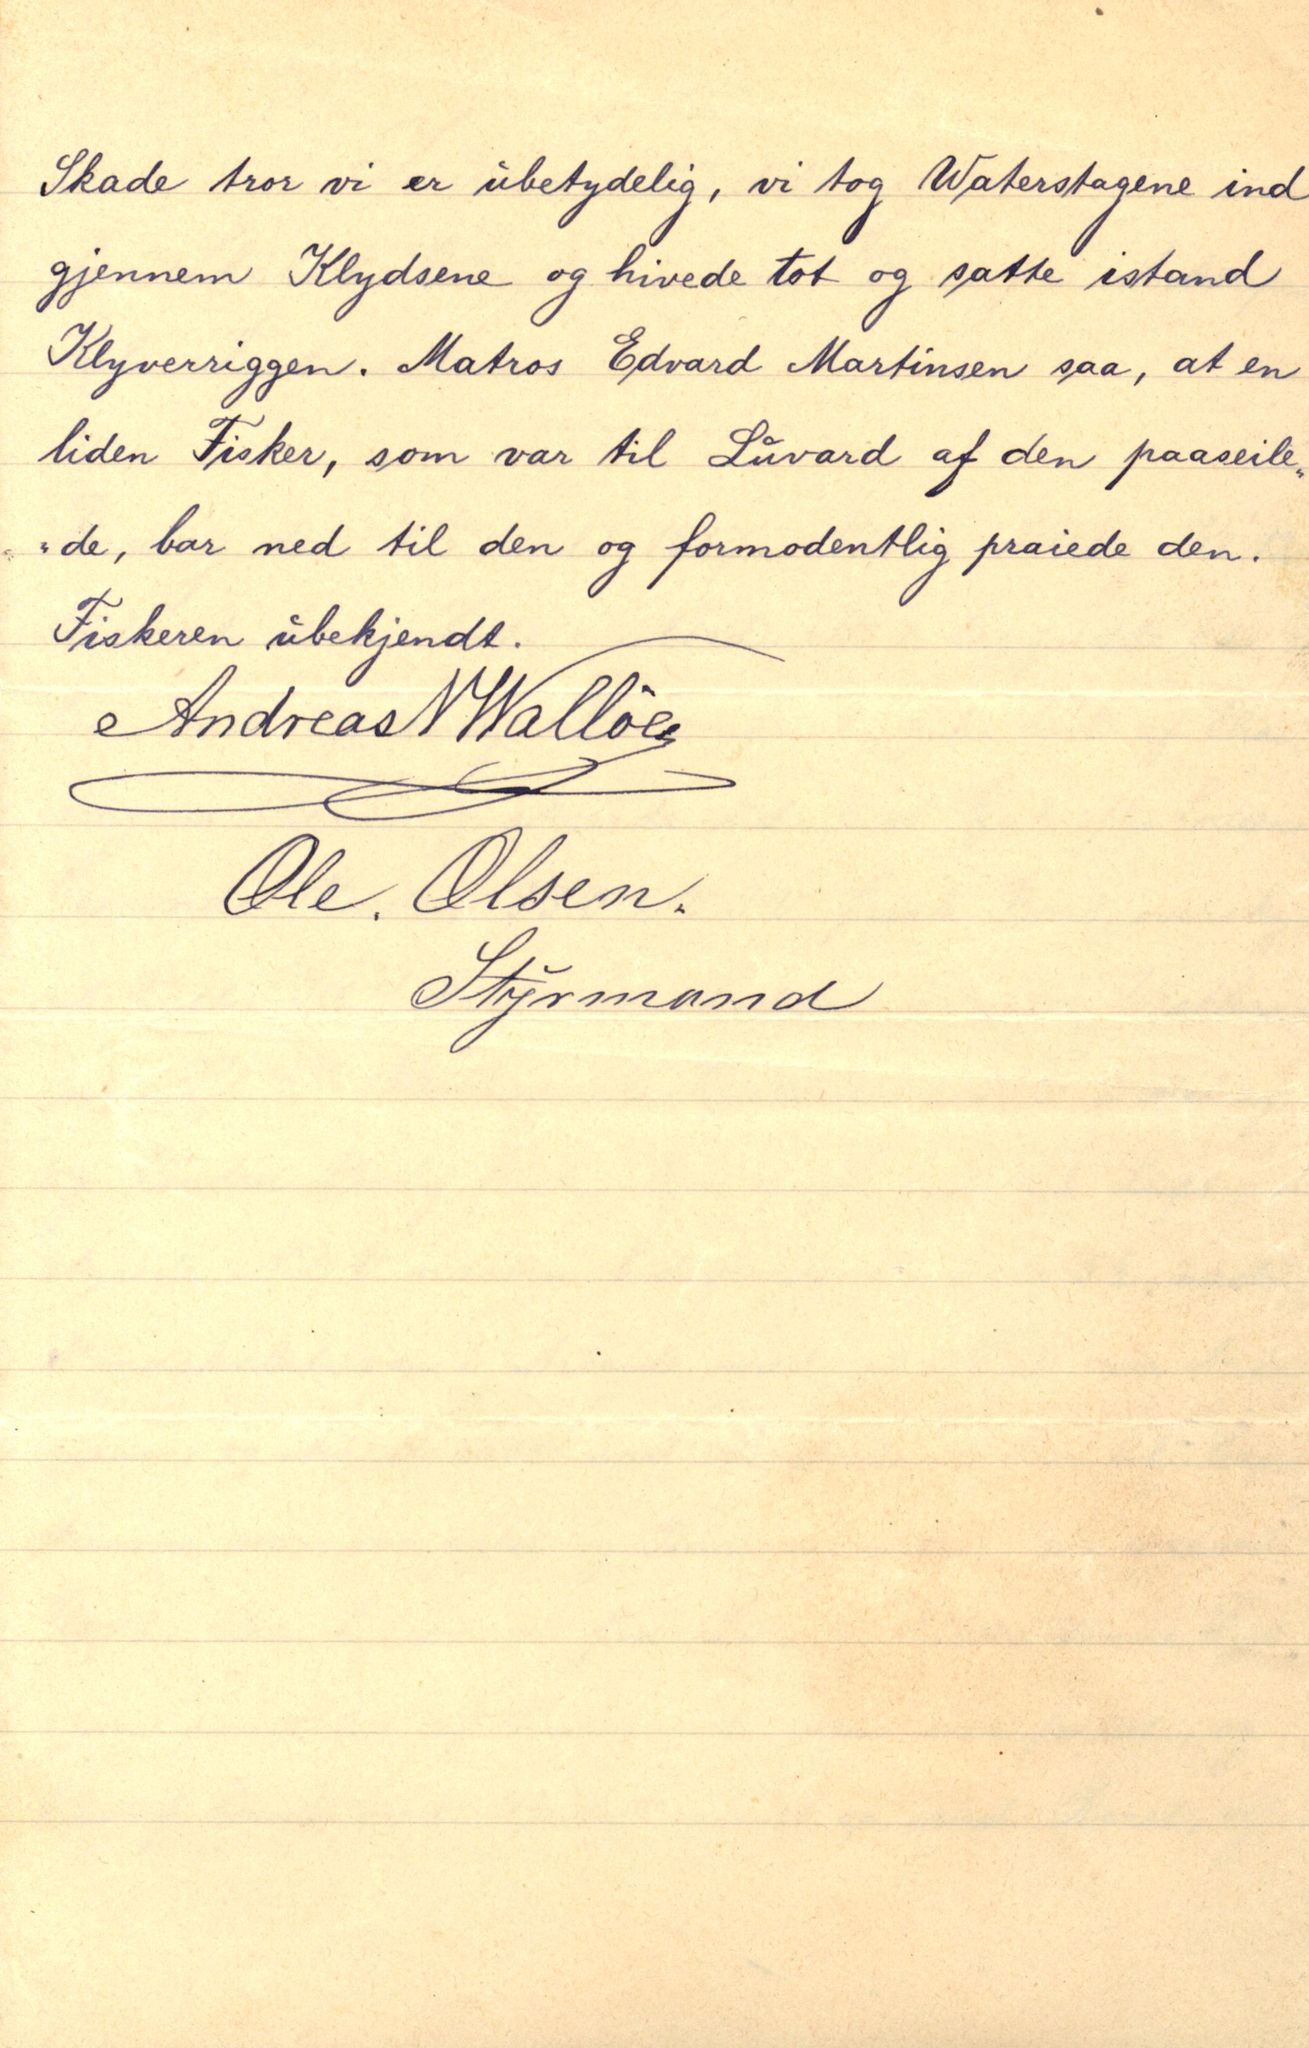 Skade tror vi er ubetydelig, vi tog Waterstagene ind
gjennem Klydsene og hivede tot og satte istand
Klyverriggen. Matros Edvard Martinsen saa, at en
liden Fisker, som var til Luvard af den paaseile„
„de, bar ned til den og formodentlig praiede den.
Fiskeren ubekjendt.
Andreas N Wallöe
Ole. Olsen.
Styrmand